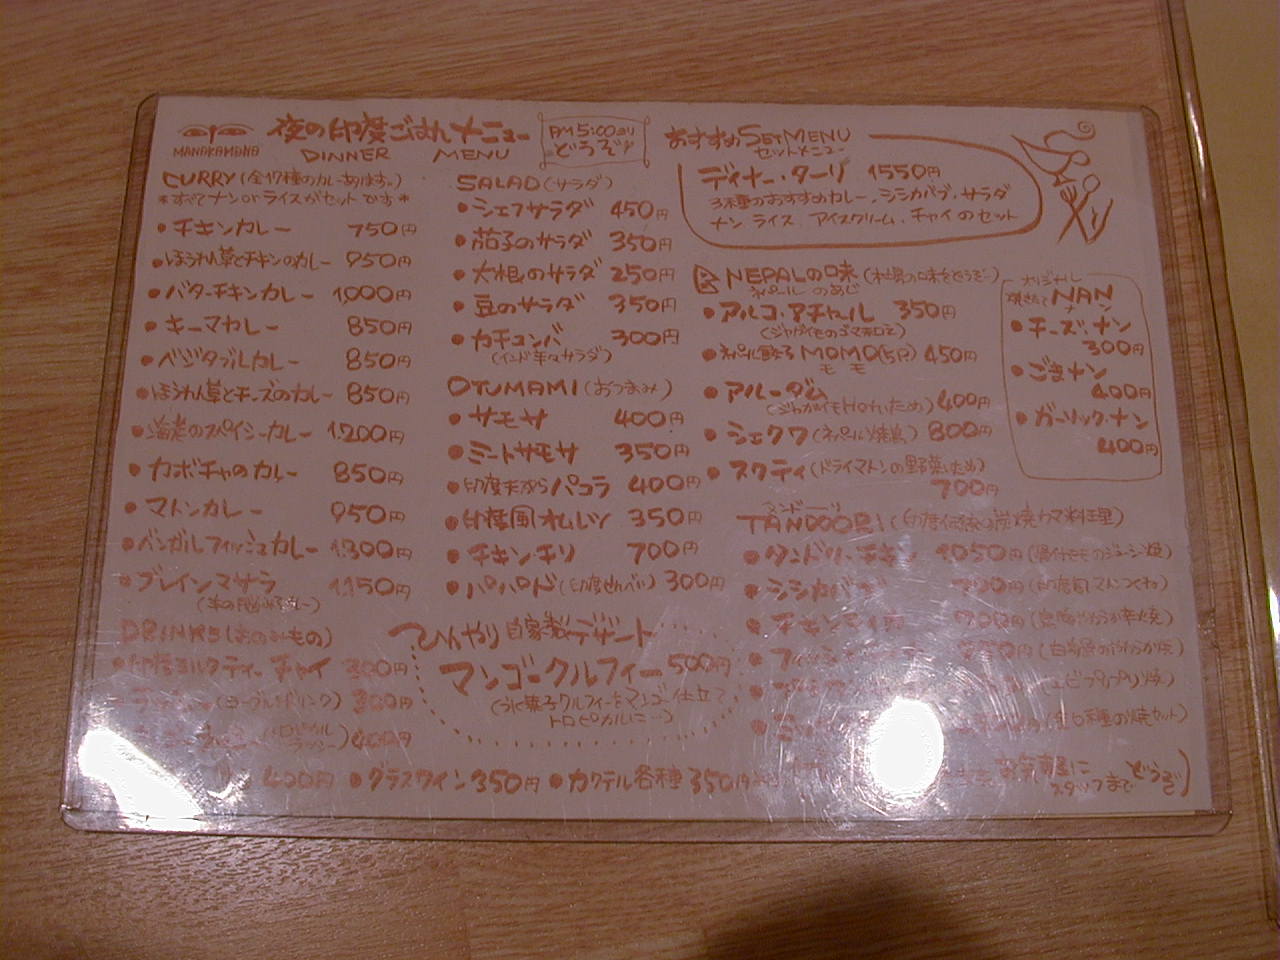 MANAKAMANA
夜の印度ごはんメニュー
DINNER MENU
PM5:00より
どうぞ
CURRY(全17種のカレーあります。)
*すべてナンorライスがセットです*
・チキンカレー 750円
・ほうれん草とチキンのカレー 950円
・バターチキンカレー 1,000円
・キーマカレー 850円
・ベジタブルカレー 850円
・ほうれん草とチーズのカレー 850円
・海老のスパイシーカレー 1,200円
・カボチャのカレー 850円
・マトンカレー 950円
・ベンガルフィッシュカレー 1,300円
・ブレインマサラ 1,150円
DRINKS(おのみもの)
・印度ミルクティー チャイ 300円
(ヨーグルトドリンク) 300円
(トロピカルラッシー) 400円
400円 ・グラスワイン 350円 ・カクテル各種 350円
SALAD(サラダ)
・シェフサラダ 450円
・茄子のサラダ 350円
・大根のサラダ 250円
・豆のサラダ 350円
・カチュンバ 300円
(インド辛々サラダ)
OTUMAMI(おつまみ)
・サモサ 400円
・ミートサモサ 350円
・印度天ぷらパコラ 400円
・印度風オムレツ 350円
・チキンチリ 700円
・パパド(印度せんべい) 300円
ひんやり自家製デザート
マンゴークルフィー 500円
(氷菓子クルフィーをマンゴー仕立て
トロピカルに…)
おすすめSET MENU
セットメニュー
ディナー・ターリ 1550円
3種のおすすめカレー、シシカバブ、サラダ
ナン ライス アイスクリーム、チャイのセット
NEPALの味(本場の味をどうぞ)
ネパールのあじ
・アルコ・アチャール 350円
(ジャガイモのゴマ和え)
・ネパール餃子MOMO(5P) 450円
モモ
・アルーダム
(ジャガイモHOTいため) 400円
・シェクワ(ネパール焼鳥) 800円
・スクティ(ドライマトンの野菜いため)
700円
オリジナル
焼きたてNAN
ナン
・チーズ・ナン
300円
・ごまナン
400円
・ガーリック・ナン
400円
タンドーリ
TANDOORI(印度伝統の炭焼カマ料理)
・タンドリーチキン 1,050円(骨付モモのジューシー焼)
・シシカバブ (印度風つくね)
・チキンティッカ
(白身魚のやわらか焼)
(エビプリプリ焼)
(全6種の焼セット)
お気軽に
スタッフまで どうぞ